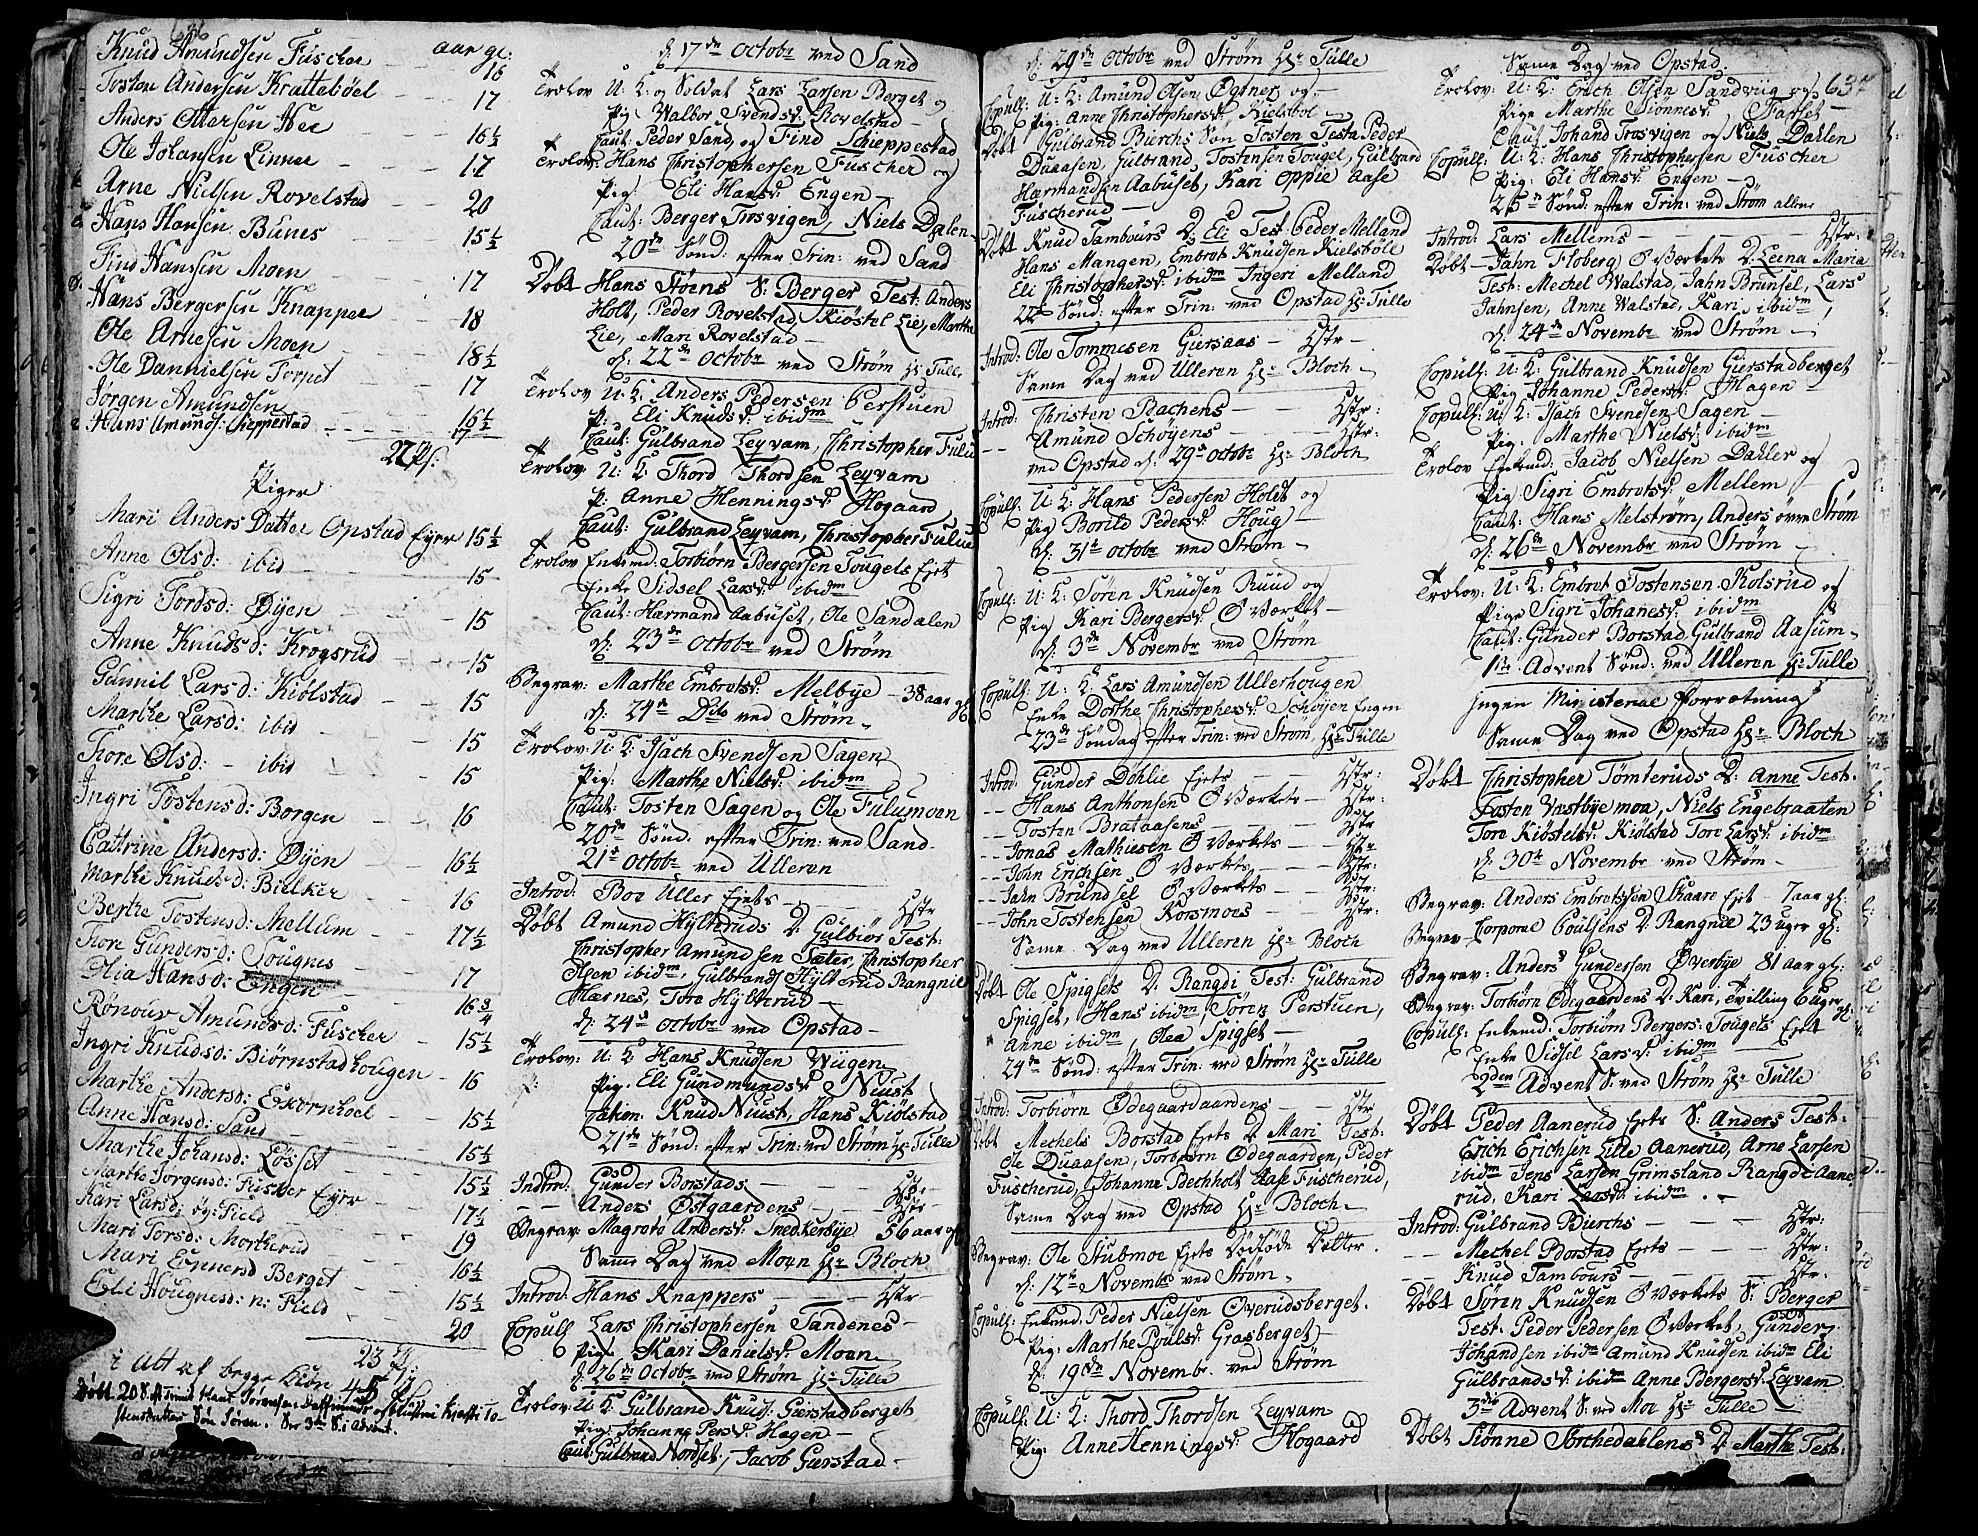 Knud Amundsen Fuscher aar gl: 16
Tosten Andersen Krattebøel 17
Anders Ottersen Hee 16½
Ole Johansen Linnee 17
Arne Nielsen Rovelstad 20
Hans Hansen Bunes 15½
Find Hansen Moen 17
Hans Bergersen Knapper 18
Ole Arnesen Moen 18½
Ole Dannielsen Torpet 17
Jørgen Amundsen 16½
Hans Amunds: Skieppestad 17
22 Ps:
Piger
Mari Anders Datter Opstad Eyer 15½
Anne Olsd: ibid 15
Sigri Tordsd: Øyen 15
Anne Knudsd: Krogsrud 15
Gunnil Larsd: Kiølstad 15
Marthe Larsd: ibid 15
Tore Olsd: ibid 15
Ingri Tostensd: Borgen 16
Cattrine Andersd: Øyen 16½
Marthe Knudsd: Bielker 16
Berthe Tostensd: Mellum 17½
Tore Gundersd: Tougnes 17
Olia Hansd: Engen 16¾
Rønour Amundsd: Fuscher 15½
Ingri Knudsd: Biørnstadhougen 16
Marthe Andersd: Ekornhoel 15½
Anne Hansd: Sand 15½
Marthe Johansd: Løsset 15½
Marthe Jørgensd: Fuscher Eyer 17½
Kari Larsd: øy: Field 19
Mari Torsd: Mortherud 16½
Mari Ennersd Berget 15½
Eli Hougnesd: n: Field 20
23 Ps:
i Alt af begge Kiøn 45 Ps
Døbt 20 S. A. Trinit Hans Sørensen
Søn Søren. Sr 3die S: Advent.
d: 17de Octobr ved Sand
Trolov U: K: og Soldat Lars Larsen Berget og
Pig Walbor Svendsd: Rovelstad
Caut: Peder Sand og Find Schieppestad
Trolov: Hans Christophersen Fuscher og
Pig: Eli Hansd: Engen
Caut: Berger Trosvigen, Niels Dalen
20de Sønd: efter Trin: ved Sand
Døbt Hans Støens S: Berger Test: Anders
Holt, Peder Rovelstad, Kiøstel Lie, Marthe
Lie, Mari Rovelstad
d: 22de Octobr ved Strøm Hr Tulle
Trolov U: K: Anders Pedersen Perstuen
P: Eli Knudsd: ibidm
Caut: Gulbrand Leyvam, Christopher Fulu
Trolov U: K: Thord Thordsen Leyvam
P: Anne Henningsd: Hogaard
Caut: Gulbrand Leyvam, Christopher Fulu
Trolov Enkemd: Torbiørn Bergersen Tougels Ejet
Enke Sidsel Larsd: ibidm
Caut: Harmand Aabuset, Ole Sandalen
d: 23de Octobr ved Strøm
Begrav: Marthe Embretsd: Melbye 38 aar gl
d: 24de Dito ved Strøm
Trolov: U: K: Isach Svendsen Sagen
Pig: Marthe Nielsd: ibidm
Caut: Tosten Sagen og Ole Fulumoen
20de Sønd: efter Trin: ved Sand
21de Octobr ved Ulleren
Introd: Boe Uller Ejets Hstr
Døbt Amund Hylteruds D: Gulbiør Test:
Christopher Amundsen Sæter, Christopher
Olsen ibidm, Gulbrand Hylterud Rangnil
Hærnes, Tore Hylterud
d: 24de Octobr ved Opstad
Trolov: U: K: Hans Knudsen Wiigen
Pig: Eli Gundmundsd: Niust
Cation: Knud Niust, Hans Kiølstad
21de Sønd: efter Trin: ved Strøm Hr Tulle
Introd: Gunder Borstads Hstr
Anders Østgaardens Hstr
Begrav: Magrete Andersd: Smedkerbye 56 aar gl
Same Dag ved Moen Hr Bloch
Introd: Hans Knappers Hstr
Copull Lars Christophersen Sandenes
Pige Kari Danielsd: Moen
d: 26de Octobr ved Strøm Hr Tulle
Trolov: U: K: Gulbrand Knuds: Gierstadberget
Pig: Johanne Persd: Hagen
Caut: Gulbrand Nordset, Jacob Gierstad
d: 29de Octobr ved Strøm Hr Tulle
Copull: U: K: Amund Olsen Ogtner og
Pig: Anne Christophersd: Kielsbøl
Døbt Gulbrand Bierchs Søn Tosten Test: Peder
Duaasen, Gulbrand, Tostensen Tougel, Gulbrand
Harmandsen Aabuset, Kari Oppie Aase
Fuscherud
Døbt Knud Tambours D: Eli Test: Peder Melland
Hans Mangen, Embret Knudsen Kielsbøle
Eli Christophersd: ibidm Ingeri Melland
22 Sønd: efter Trin: ved Opstad Hr Tulle
Introd: Ole Tommesen Giersaas Hstr
Same Dag ved Ulleren Hr Bloch
Introd: Christen Bachens Hstr:
Amund Schøyens Hstr:
ved Opstad d: 29de Octobr Hr Bloch
Copull: U: K: Hans Pedersen Holdt og
Pig Borild Pedersd: Houg
d: 31te Octobr ved Strøm
Copull: U: K: Søren Knudsen Ruud og
Pig: Kari Bergersd: O Værket
d: 3de Novembr ved Strøm
Copull: U: K: Lars Amundsen Ullerhougen
Enke Dorthe Christophersd: Schøyen Engen
23de Søndag efter Trin: ved Strøm, Hr Tulle
Introd: Gunder Døhlie Ejets Hstr:
Hans Anthonsen O Værkets Hstr:
Tosten Brataasens Hstr
Jonas Mathiesen O Værkets Hstr
John Erichsen O Værkets Hstr:
Jahn Brundsel O Værkets Hstr:
John Tostensen Korsmoes Hstr:
Same Dag ved Ulleren Hr Bloch
Døbt Ole Spigsets D: Rangdi Test: Gulbrand
Spigset, Hans ibidm, Søren Perstuen,
Anne ibidm, Olea Spigset
24de Sønd: efter Trin: ved Strøm Hr Tulle
Introd: Torbiørn Ødegaardaardens Hstr
Døbt Mechels Borstad Ejets D: Mari Test:
Ole Duaasen, Torbiørn Ødegaarden, Peder
Fuscherud, Johanne Bechholt Aase Fuscherud,
Same Dag ved Opstad Hr Bloch
Begrav: Ole Stubmoe Ejets Dødføde Datter.
d: 12te Novembr ved Strøm
Copull: Enkemd: Peder Nielsen Overudsberget.
Pig: Marthe Poulsd: Grasberget
d: 19de Novembr ved Strøm
Copull: U: K: Thord Thordsen Leyvam
Pig: Anne Henningsd: Hogaard
Same Dag ved Opstad.
637
Trolov: U: K: Erich Olsen Sandviig og
Pige Marthe Siønnesd: Fasset
Caut Johand Trosvigen og Niels Dahlen
Copull: U: K: Hans Christophersen Fuscher
Pig: Eli Hansd: Engen
25de Sønd: efter Trin: ved Strøm
Introd: Lars Mellems Hstr:
Døbt Jahn Floberg O Værkets D: Leena Maria
Test: Mechel Walstad, Jahn Brunsel, Lars
Jahnsen, Anne Walstad, Kari ibidm
d: 24de Novembr ved Strøm
Copull: U: K: Gulbrand Knudsen Gierstadberget
Pig Johanne Pedersd: Hagen
Copull: U: K: Isach Svendsen Sagen
Pig: Marthe Nielsd: ibidm
Trolov Enkemd: Jacob Nielsen Dahler og
Pig Sigri Embretsd: Mellem
Caut: Hans Melstrøm, Anders øvre Strøm
d: 26de Novembr ved Strøm
Trolov: U: K: Embret Tostensen Kolsrud og
Pige Sigri Johanesd: ibidm
Caut: Gunder Borstad, Gulbrand Aasum
1te Advent Sønd: ved Ulleren Hr Tulle
Ingen Ministerial Forretning
Same Dag ved Opstad Hr Bloch
Døbt Christopher Tomteruds D: Anne Test:
Tosten Vestbyemoen, Niels Engebraaten
Tore Kiøstelsd: Kiølstad Tore Larsd: ibidm
d: 30te Novembr ved Strøm
Begrav: Anders Embretssen Skaare Ejet 7 aar gl:
Begrav Corporal Poulsens D: Rangnil 23 uger gl:
Begrav: Anders Gundersen Øverbye 81 aar gl:
Begrav: Torbiørn Ødegaardens D: Kari, Tvilling 6 uger gl:
Copull: Enkemd: Torbiørn Bergers: Tougels Ejet
Enke Sidsel Larsd: ibidm
2den Advent S: ved Strøm Hr Tulle
Døbt Peder Aanerud Ejets S: Anders Test:
Erich Erichsen Lille Aanerud, Arne Larsen
ibidm Jens Larsen Grimsland Rangdi Aane
rud, Kari Larsd: ibidm
Introd: Gulbrand Bierchs Hstr:
Mechel Borstad Ejets Hstr:
Knud Tambours Hstr:
Døbt Søren Knudsen O Værkets S: Berger
Test: Peder Pedersen O Værket, Gunder
Johandsen ibidm Amund Knudsen ibidm Eli
Gulbrandsd: ibidm Anne Bergersd: Leyvam
3die Advent S: ved Moe Hr Tulle
Døbt Siønne Sorchedahlens D: Marthe Test: